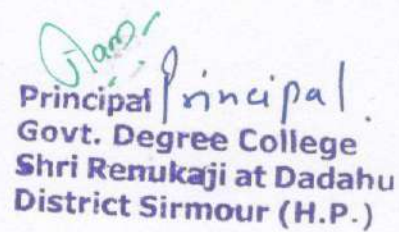 Principal Principal.
Govt. Degree College
Shri Renukaji at Dadahu
District Sirmour (H.P.)